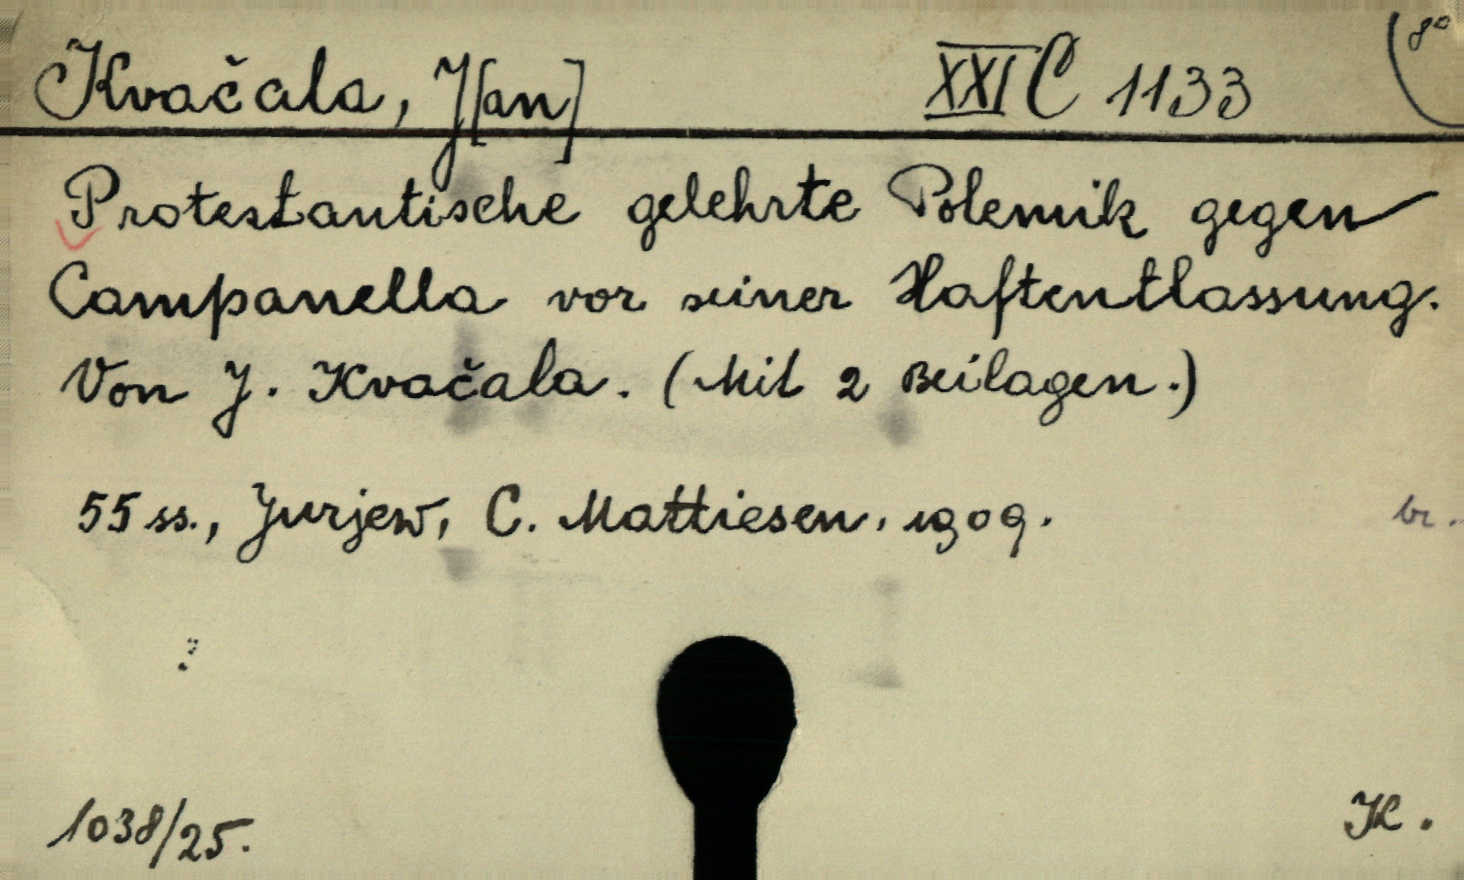 Kvačala, J[an] XXI C 1133 8°
Protestantische gelehrte Polemik gegen
Campanella vor seiner Haftentlassung.
Von J. Kvačala. (Mit 2 Beilagen.)
55 ss., Jurjew, C. Mattiesen, 1909. br.
1038/25. K.